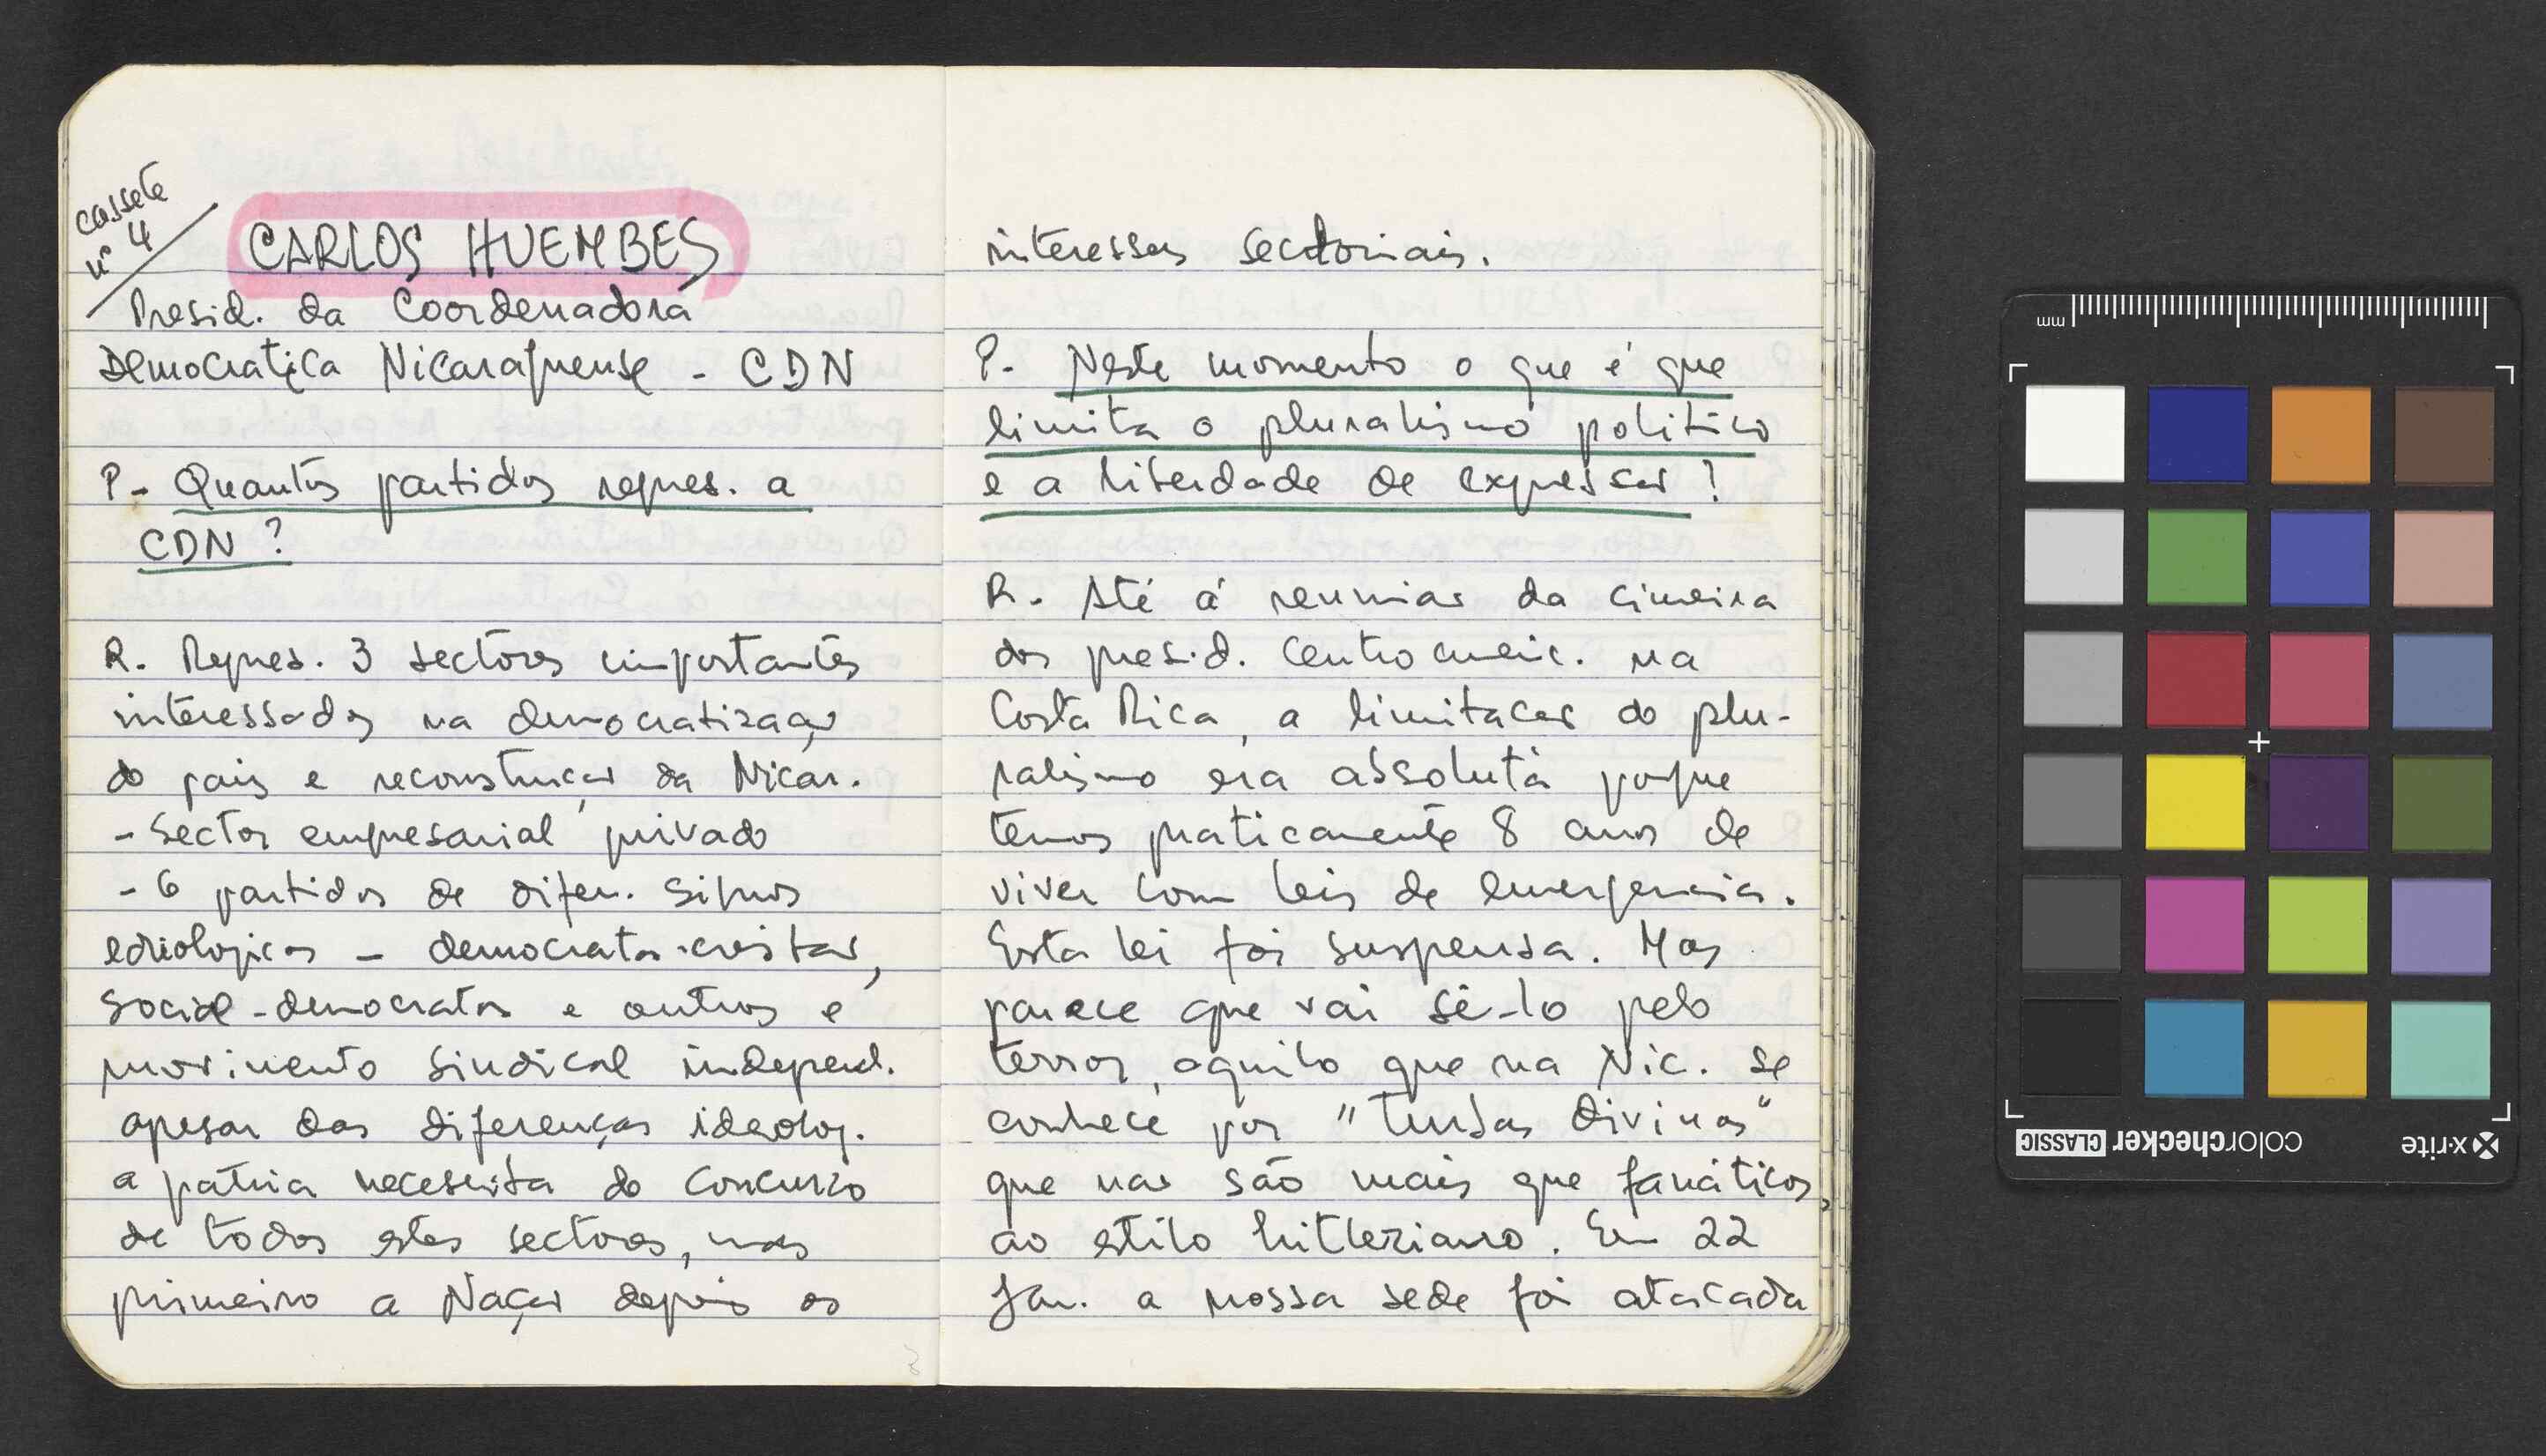 cassete
nº 4
CARLOS HUEMBES
Presid. da Coordenadora
Democratica Nicaraguense - CDN
P- Quantos partidos repres. a
CDN?
R. Repres. 3 sectores importantes
interessados na democratização
do pais e reconstrução da Nicar.
- Sector empresarial privado
- 6 partidos de difer. signos
edeologicos - democratas-cristãos,
social-democratas e outros e
movimento sindical independ.
apesar das diferenças ideolog.
a patria necessita do concurso
de todos estes sectores, mas
primeiro a Nação depois os
interesses sectoriais.
P- Neste momento o que é que
limita o pluralismo politico
e a liberdade de expressão?
R. Até á reunião da cimeira
dos presid. centroameric. na
Costa Rica, a limitação do plu-
ralismo era absoluta porque
temos praticamente 8 anos de
viver com leis de emergencia.
Esta lei foi suspensa. Mas
parece que vai sê-lo pelo
terror, aquilo que na Nic. se
conhece por "Turbas divinas"
que não são mais que fanáticos,
ao estilo hitleriano. Em 22
Jan. a nossa sede foi atacada
mm
x-rite
colorchecker CLASSIC